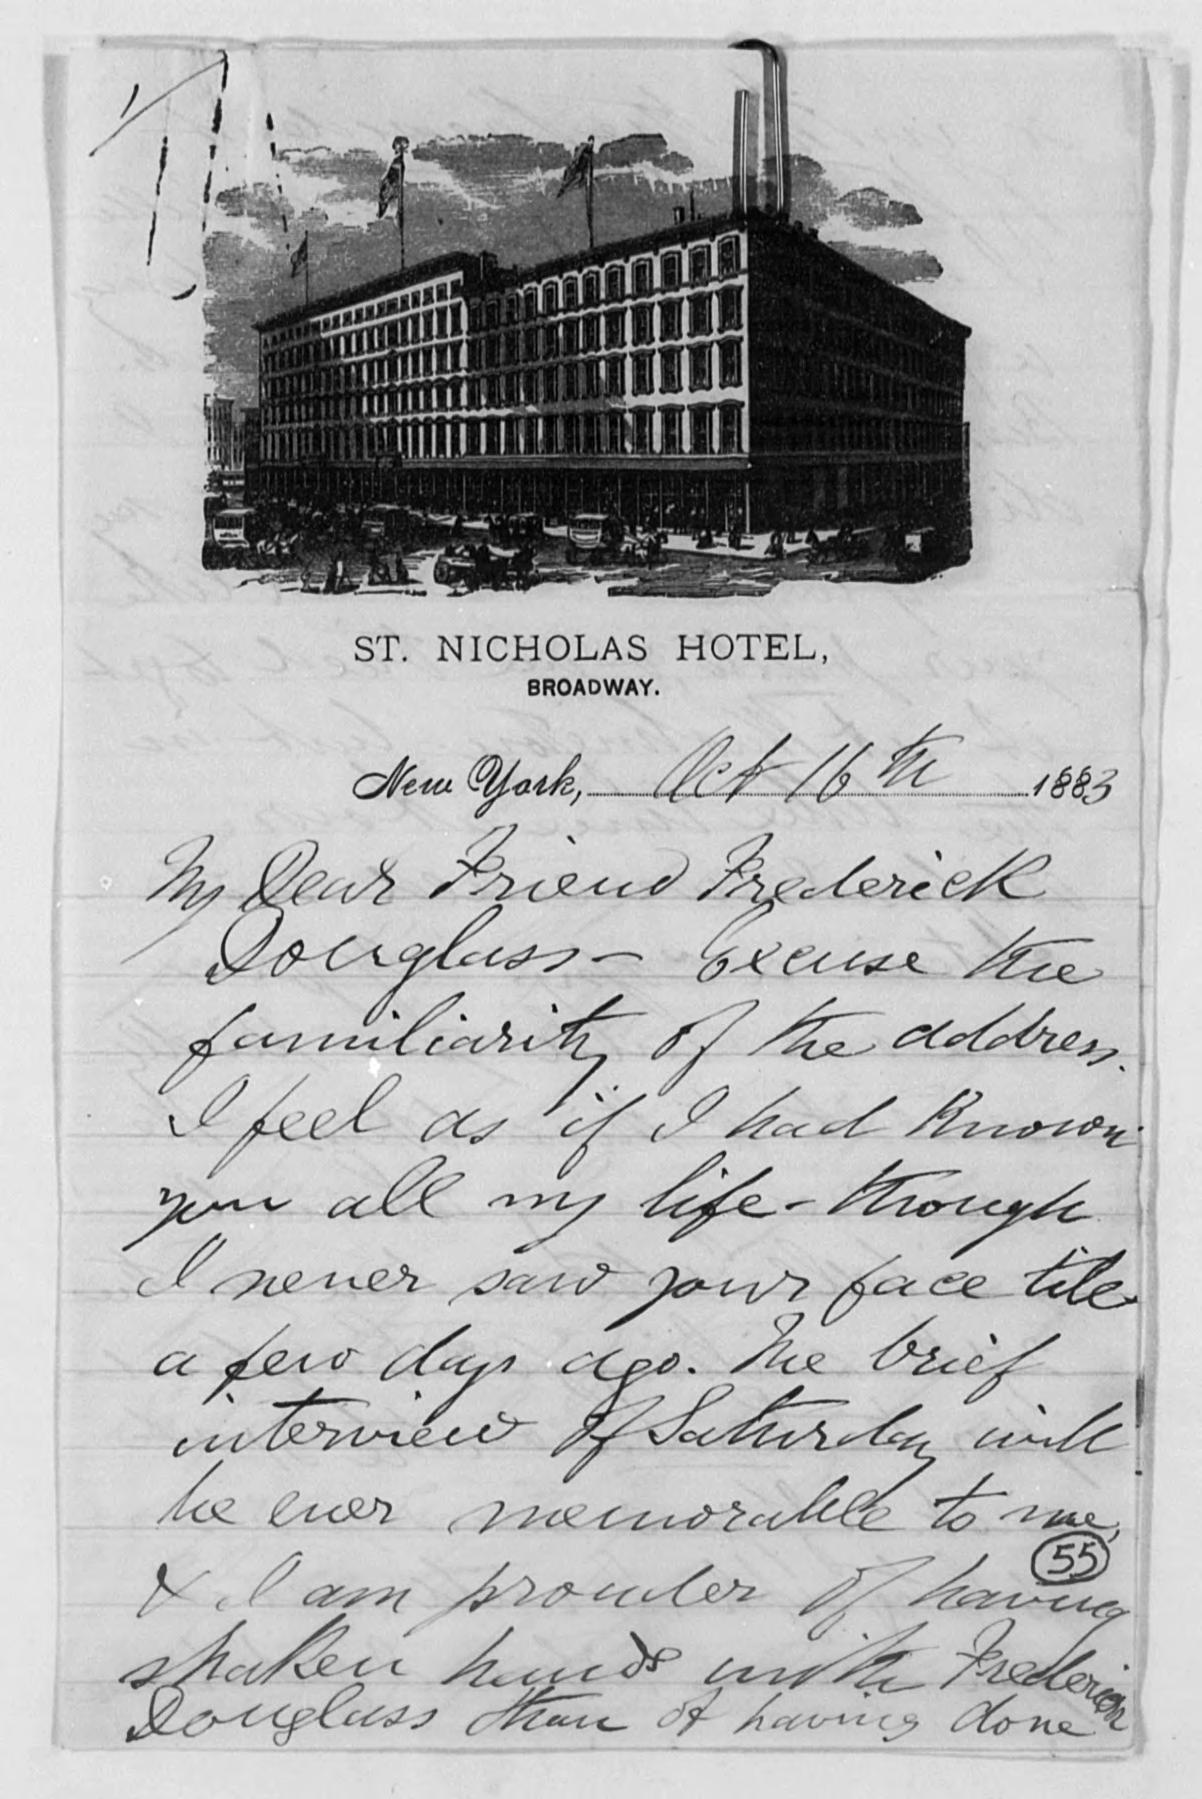 1/
ST. NICHOLAS HOTEL,
BROADWAY.
New York, Oct 16th 1883
My Dear Friend Frederick
Douglass - Excuse the
familiarity of the address.
I feel as if I had Known
you all my life - though
I never saw your face till
a few days ago. The brief
interview of Saturday will
be ever memorable to me,
55
& I am prouder of having
shaken hands with Frederick
Douglass than of having done